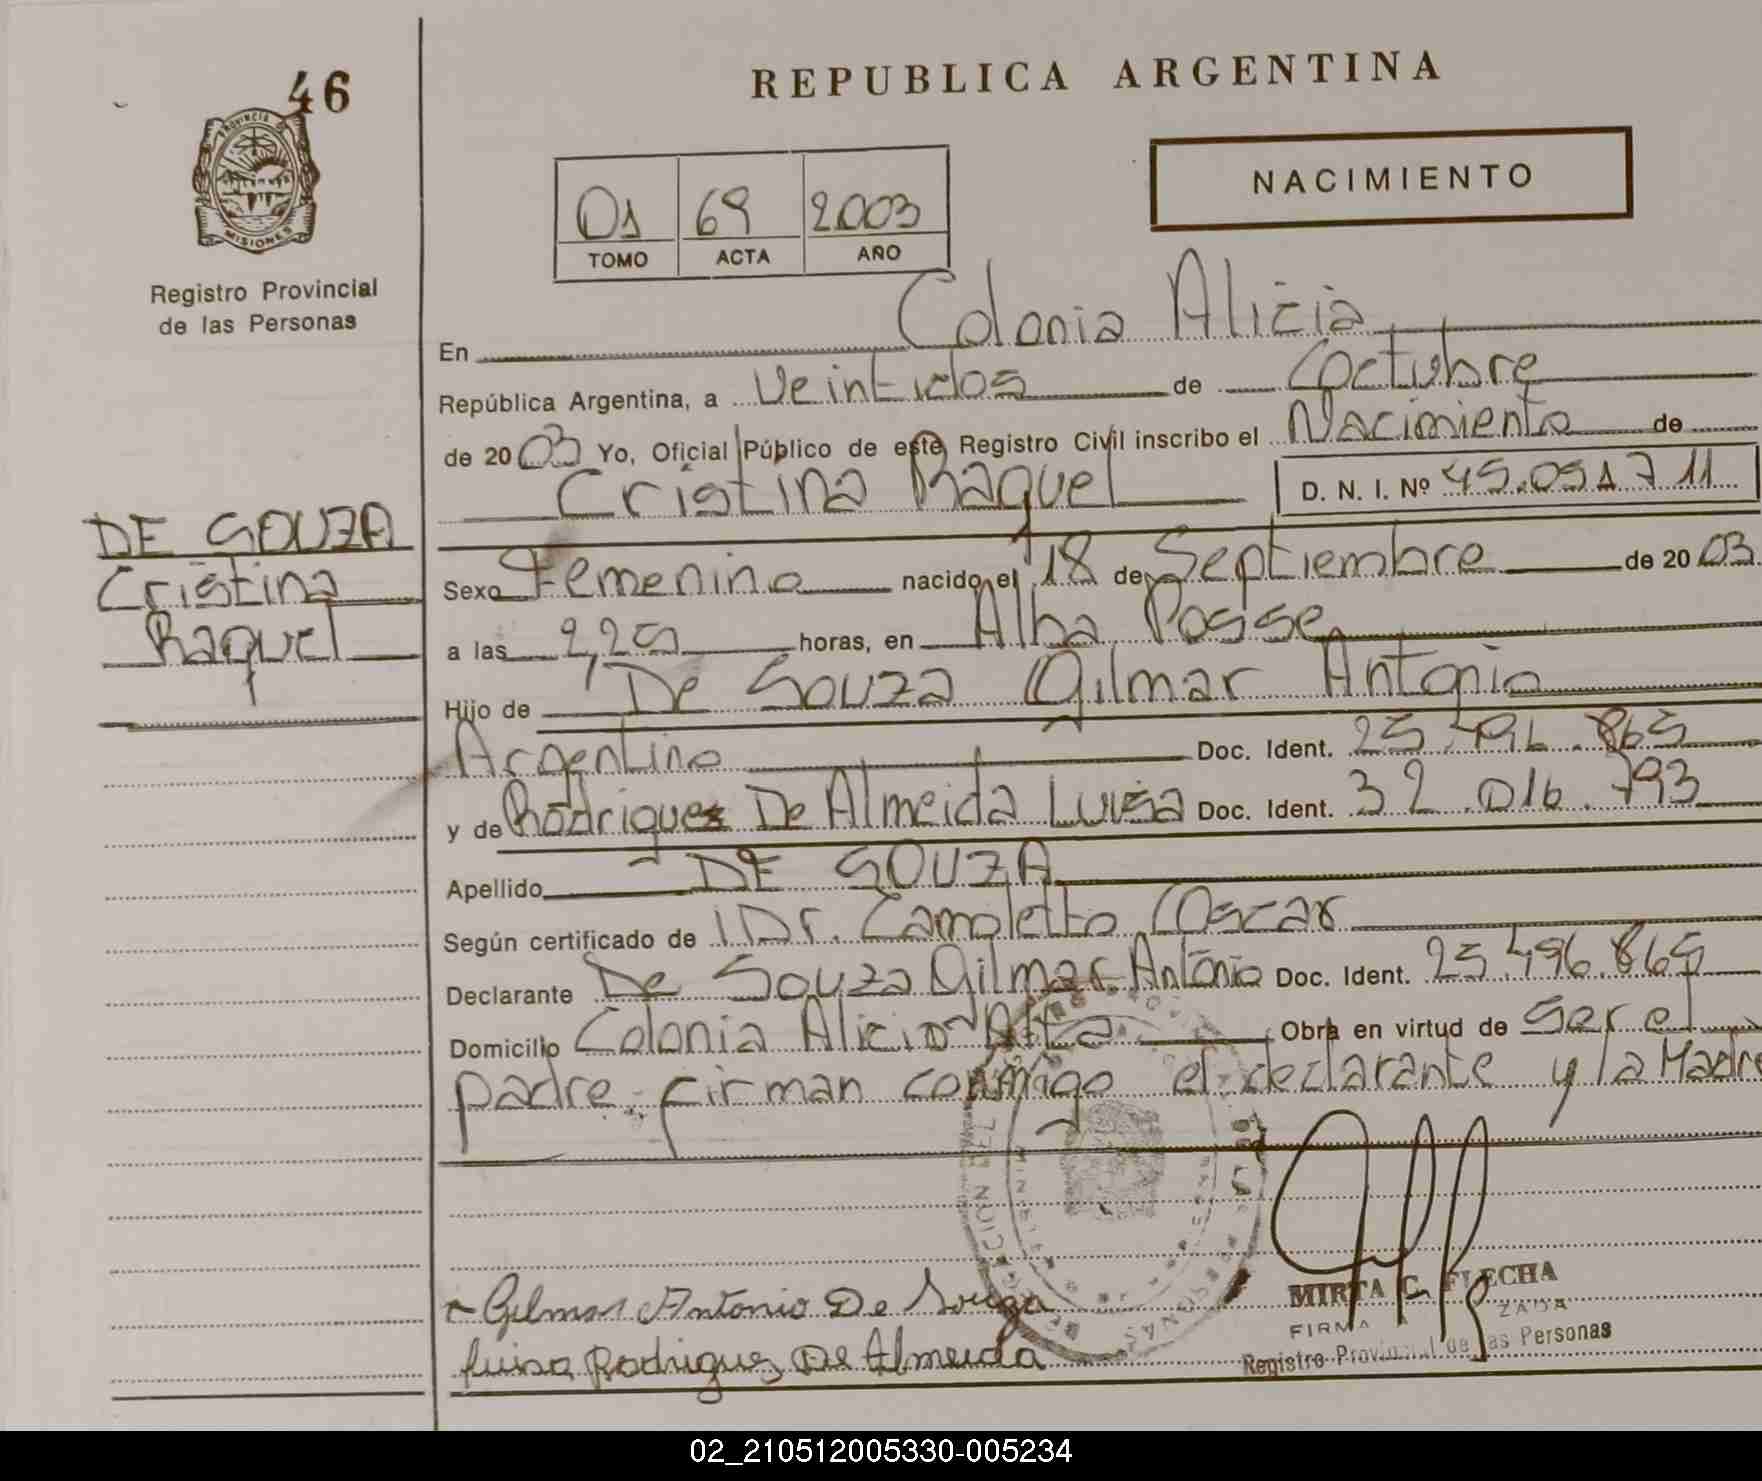 46
REPUBLICA ARGENTINA
NACIMIENTO
01 69 2003
TOMO ACTA AÑO
PROVINCIA DE
MISIONES
Registro Provincial
de las Personas
En Colonia Alicia
República Argentina, a Veintidos de Octubre
de 2003 Yo, Oficial Público de este Registro Civil inscribo el Nacimiento de
Cristina Raquel D. N. I. Nº 45.051711
DE SOUZA
Cristina
Raquel
Sexo Femenino nacido el 18 de Septiembre de 2003
a las horas, en Alba Posse
Hijo de De Souza Gilmar Antonio
Argentino Doc. Ident. 25.496.865
y de Rodriguez De Almeida Luisa Doc. Ident. 32.016.793
Apellido DE SOUZA
Según certificado de Dr. Camoletto Oscar
Declarante De Souza Gilmar Antonio Doc. Ident. 25.496.865
Domicilio Colonia Alicia Alta Obra en virtud de Ser el
padre. Firman conmigo el declarante y la Madre
Gilmar Antonio De Souza
Luisa Rodriguez De Almeida
MIRTA C. FLECHA
FIRMA
Registro Provincial de las Personas
02_210512005330-005234